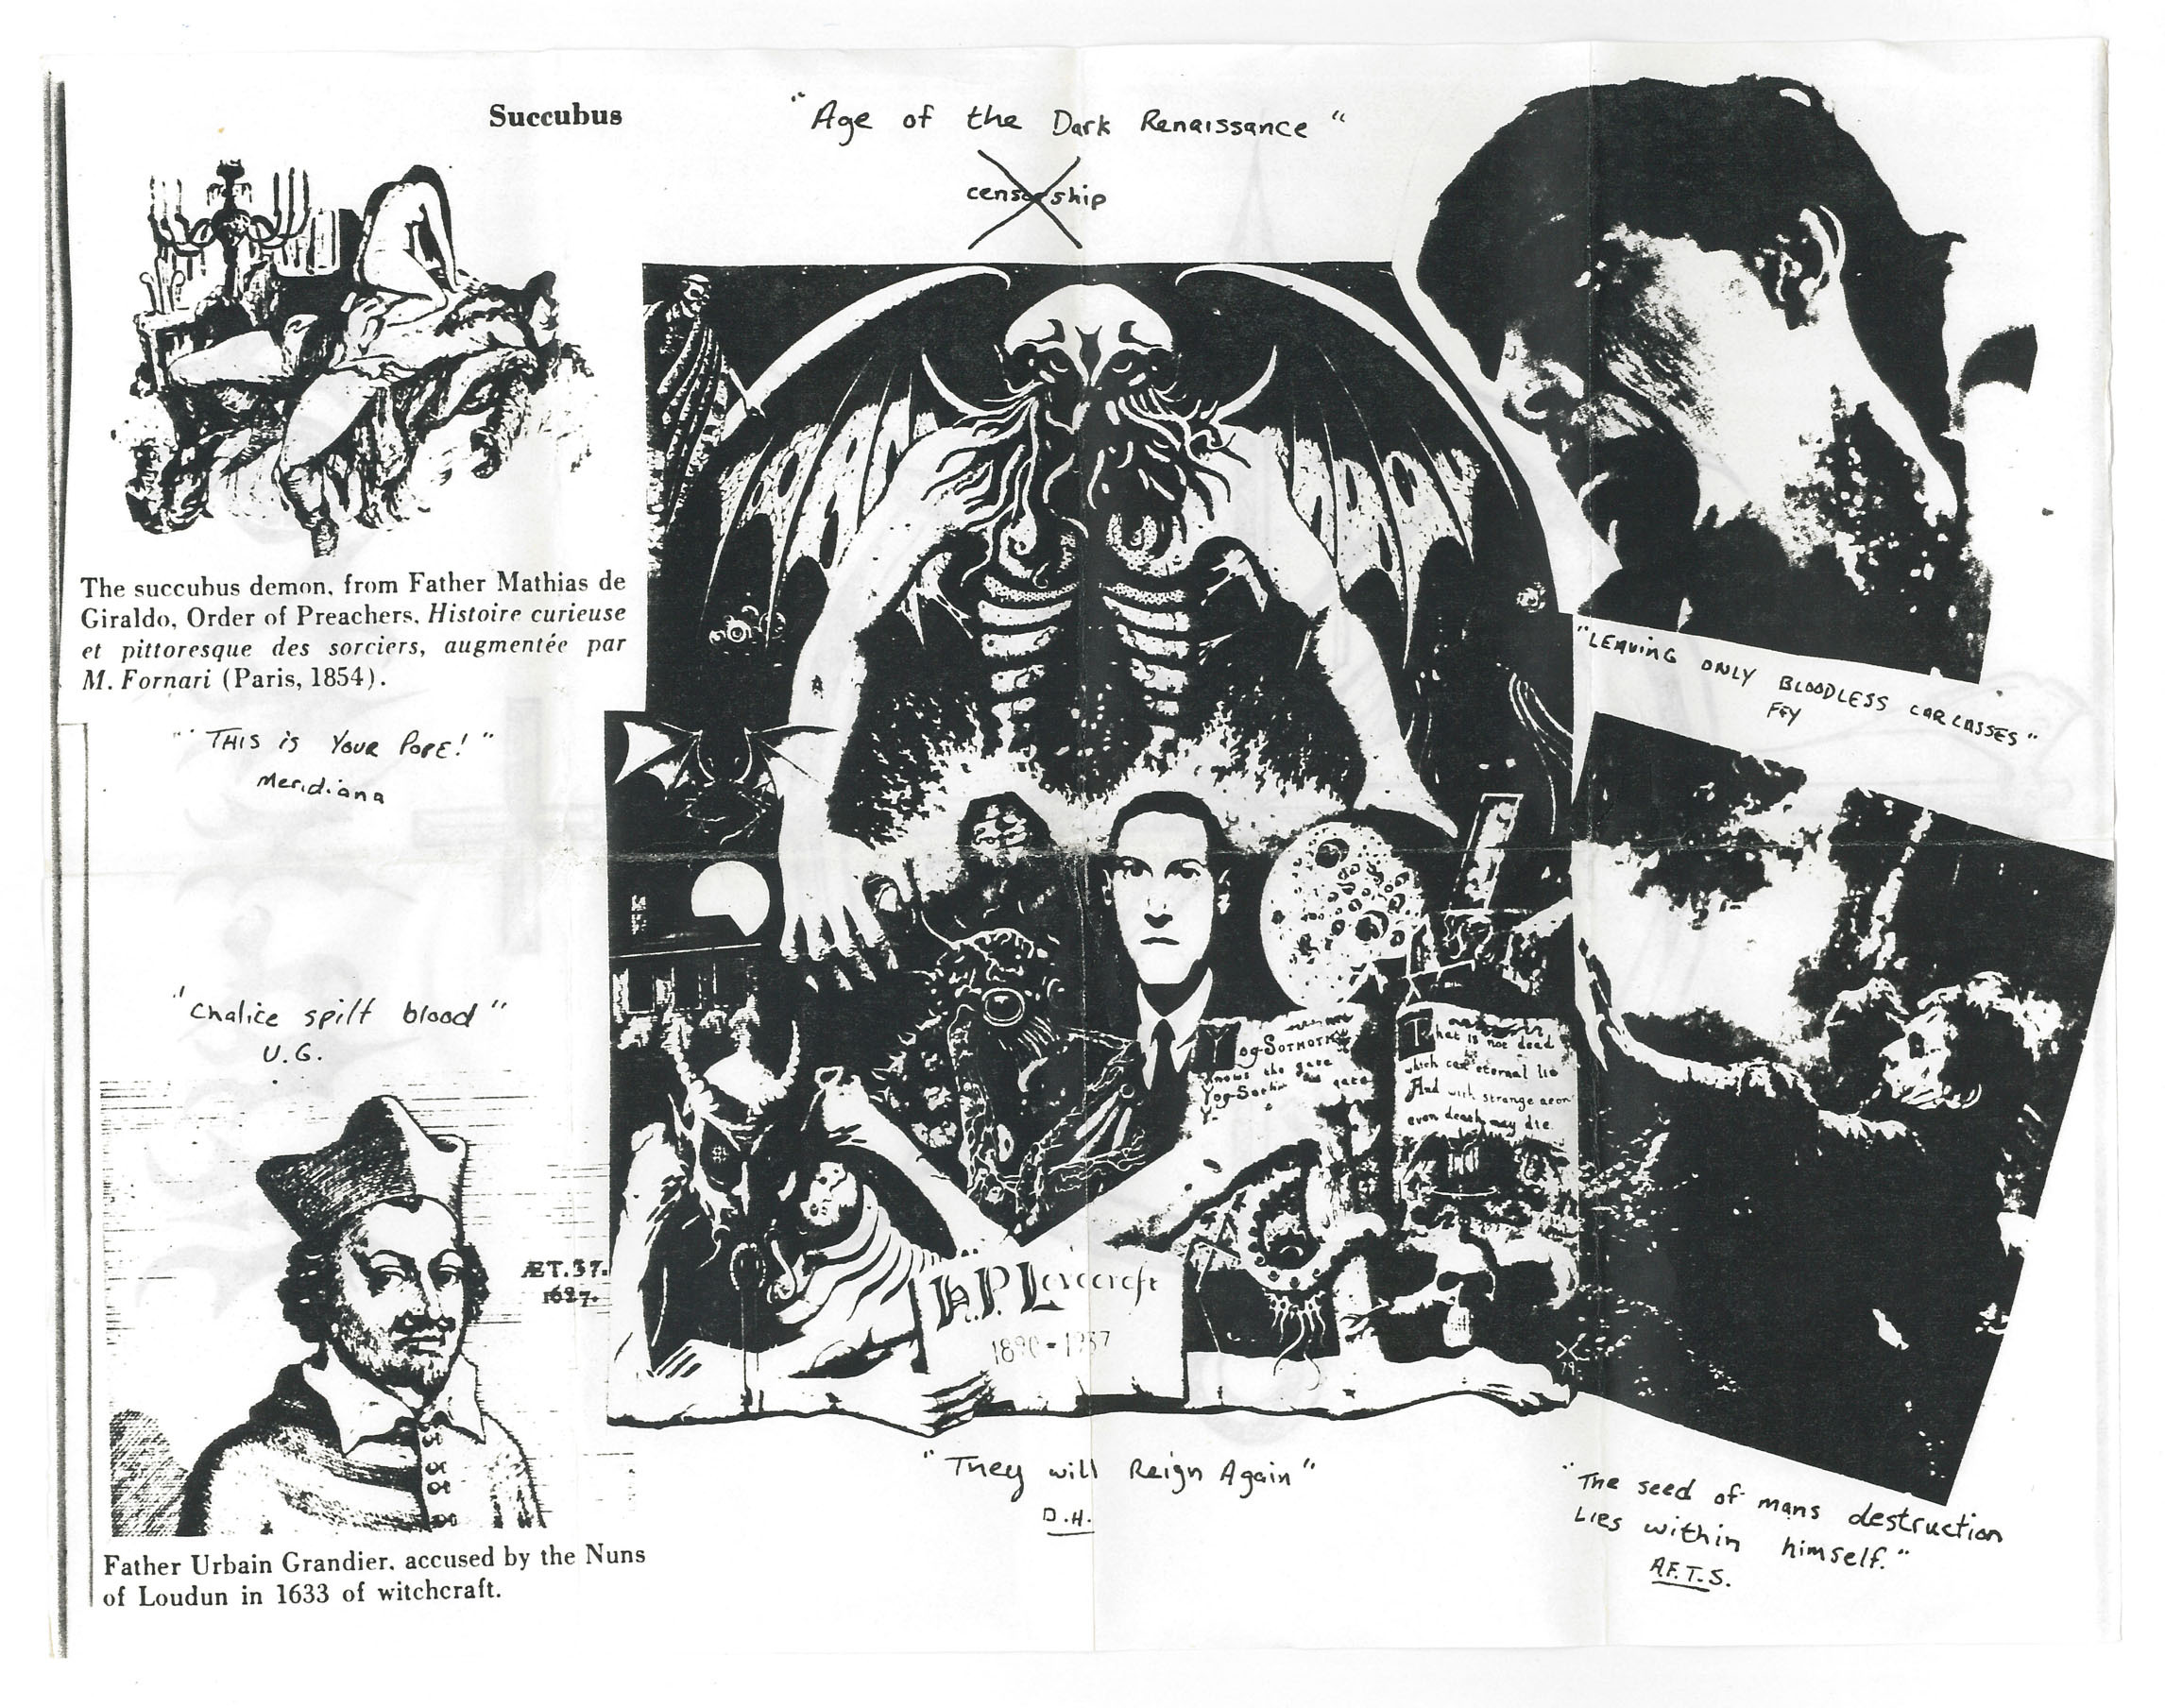 Succubus
"Age of the Dark Renaissance"
censorship
The succubus demon, from Father Mathias de
Giraldo, Order of Preachers, Histoire curieuse
et pittoresque des sorciers, augmentée par
M. Fornari (Paris, 1854).
"THIS is YOUR POPE!"
Meridiana
"chalice spilt blood"
U.G.
ÆT.37.
1627.
Father Urbain Grandier, accused by the Nuns
of Loudun in 1633 of witchcraft.
Yog-Sothoth
knows the gate
Yog-Sothoth gate
That is not dead
which can eternal lie
And with strange aeons
even death may die.
H.P. Lovecraft
1890-1937
79
"They will Reign Again"
D.H.
"LEAVING ONLY BLOODLESS CARCASSES"
FEY
"The seed of mans destruction
Lies within himself."
A.F.T.S.